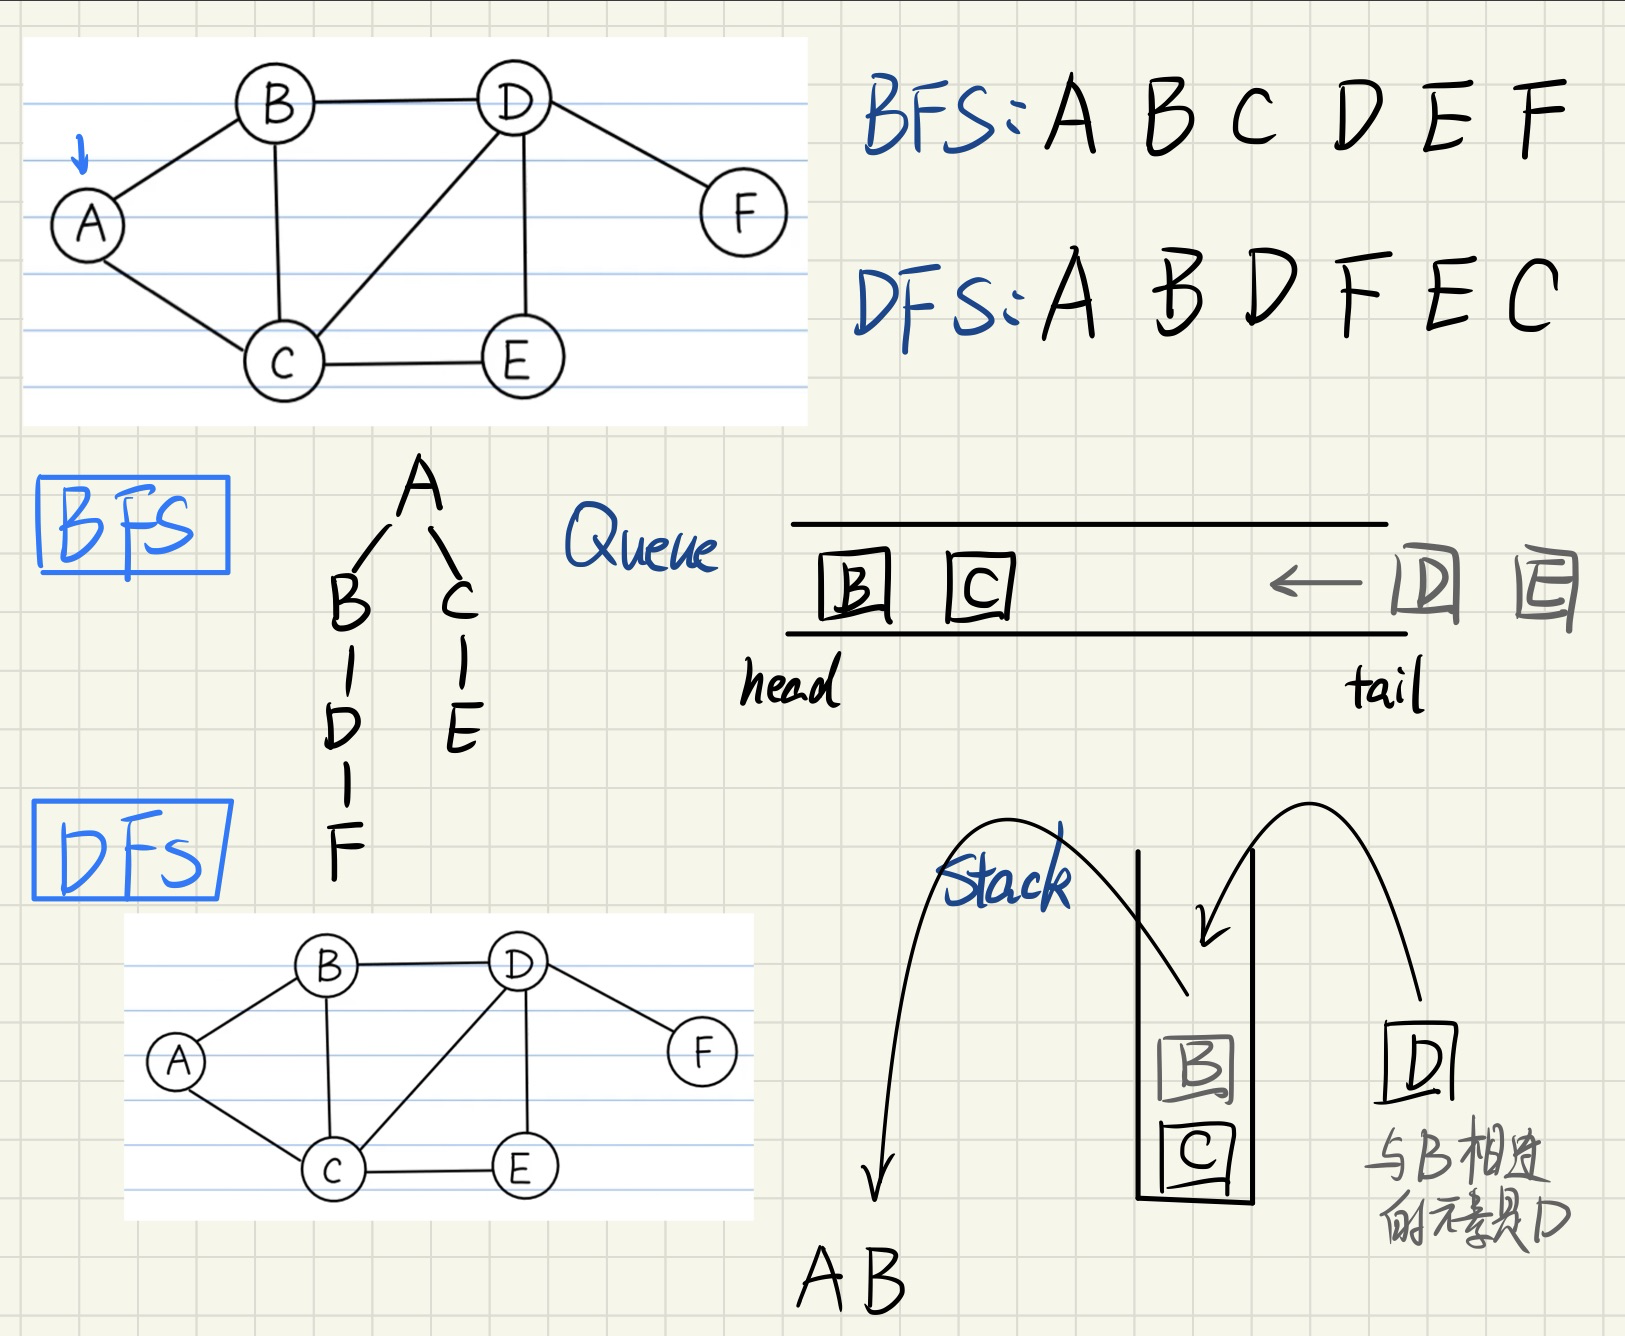 B D
A F
C E
BFS: A B C D E F
DFS: A B D F E C
BFS
A
B C
D E
F
Queue
B C ← D E
head tail
DFS
B D
A F
C E
Stack
B
C
D
与B相连
的元素是D
A B